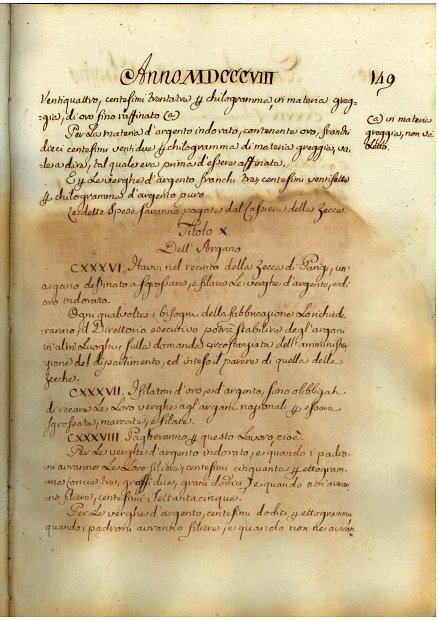 Anno MDCCCVIII 149
Ventiquattro, centesimi trentatre ꝑ chilogramma, in materia greg-
gia, di oro fino raffinato (a)
(a) in materia
greggia, non và
detto.
Per la materia d'argento indorato, contenente oro, franchi
dieci centesimi ventidue ꝑ chilogramma di materia greggia, va-
le a dire, tal quale era prima d'essere affinata.
E ꝑ le verghe d'argento franchi tre, centesimi ventisette
ꝑ chilogramma d'argento puro.
Le dette Spese saranno pagate dal Cassiere della Zecca.
Titolo X
Dell'Argano
CXXXVI. Havvi nel recinto della Zecca di Parigi, un
argano destinato a sgrossare, e filare le verghe d'argento, e di
oro indorato.
Ogni qualvolta i bisogni della fabbricazione lo richiede-
ranno il Direttorio esecutivo potrà stabilire degl'argani
in altri Luoghi, sulla domanda circostanziata dell'amministra-
zione del dipartimento, ed inteso il parere di quella delle
Zecche.
CXXXVII. I filatori d'oro, e d'argento, sono obbligati
di recare le loro verghe agl'argani nazionali ꝑ essere
sgrossate, marcate, e filate.
CXXXVIII Pagheranno ꝑ questo Lavoro, cioè.
Per le verghe d'argento indorato, e quando i padro-
ni avranno le Loro filiere, centesimi cinquanta ꝑ ettogram-
ma (oncie tre, grossi due, grani dodici) e quando non avran-
no filiere, centesimi settantacinque.
Per le verghe d'argento, centesimi dodici ꝑ ettogramma
quando i padroni avranno filiere, e quando non ne avran-